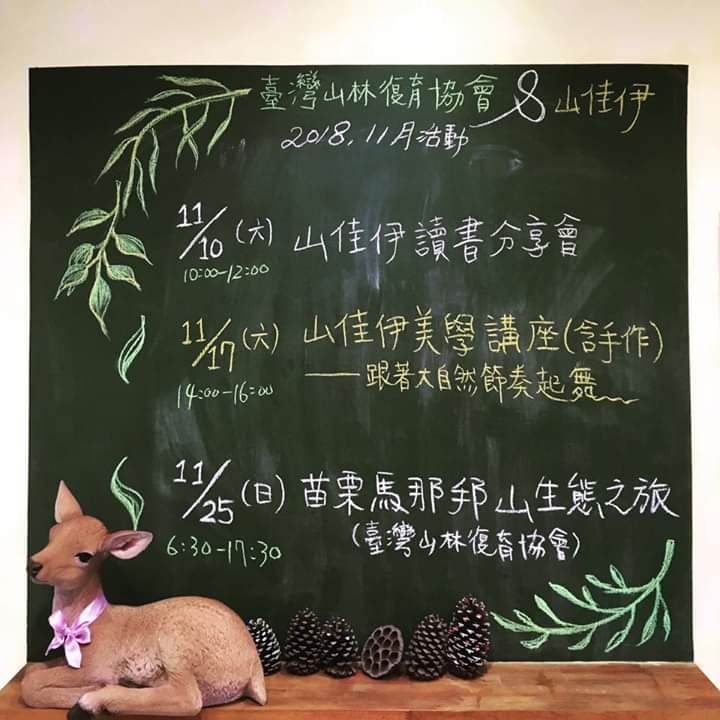 臺灣山林復育協會 & 山佳伊
2018.11月活動
11/10(六) 山佳伊讀書分享會
10:00-12:00
11/17(六) 山佳伊美學講座(含手作)
14:00-16:00 ——跟著大自然節奏起舞～
11/25(日) 苗栗馬那邦山生態之旅
6:30-17:30 (臺灣山林復育協會)